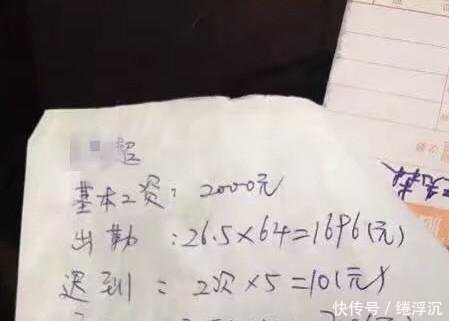 超
基本工资：2000元
出勤：26.5×64=1696(元)
迟到：2次×5=10(元)
快传号 / 绻浮沉